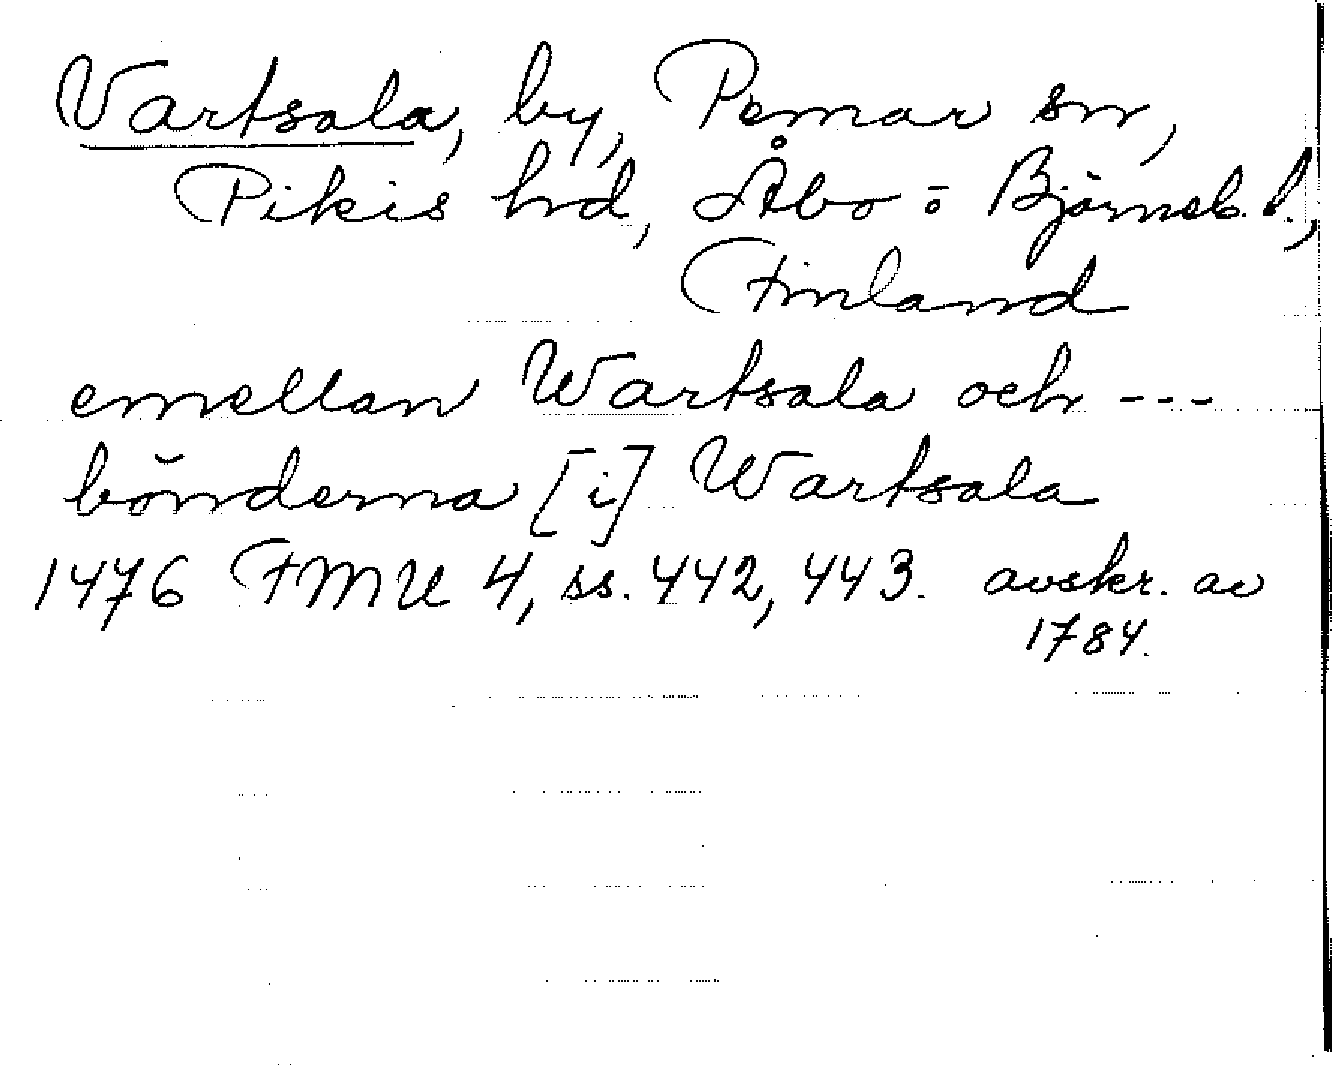 Vartsala, by, Pemar sn,
Pikis hrd, Åbo o Björneb. l.,
Finland
emellan Wartsala och ---
bönderna [i] Wartsala
1476 FMU 4, ss. 442, 443. avskr. av
1784.